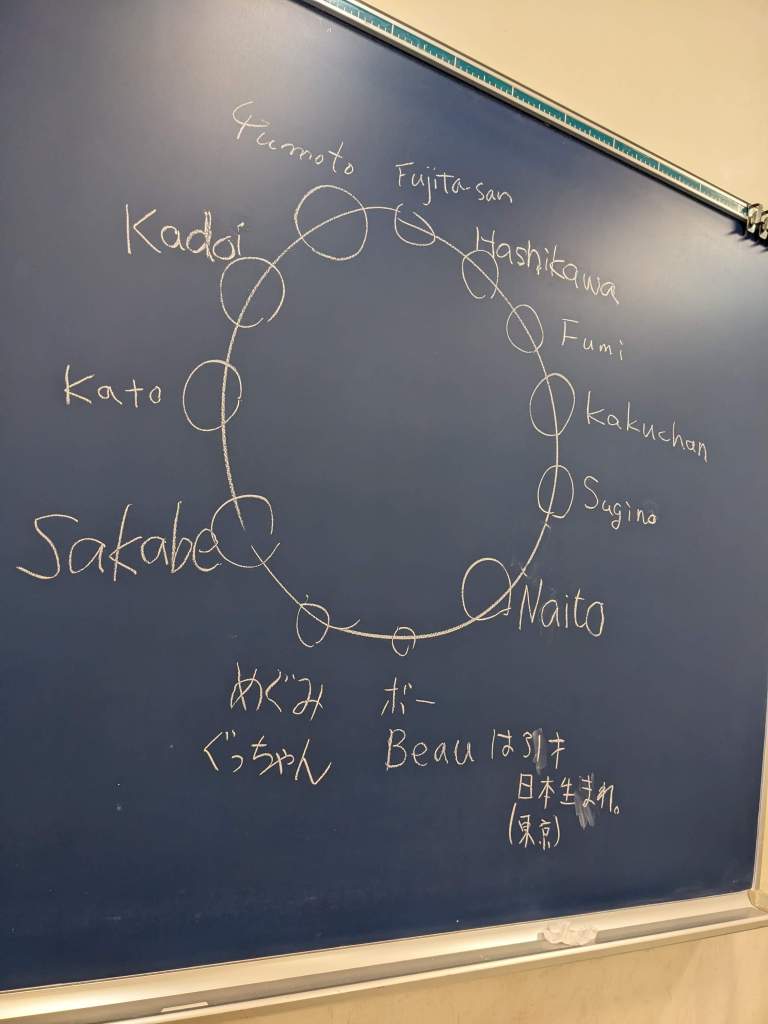 Yumoto
Fujita-san
Kadoi
Hashikawa
Fumi
Kato
Kakuchan
Sugino
Sakabe
Naito
めぐみ
ボー
ぐっちゃん
Beau は 31才
日本生まれ。
(東京)